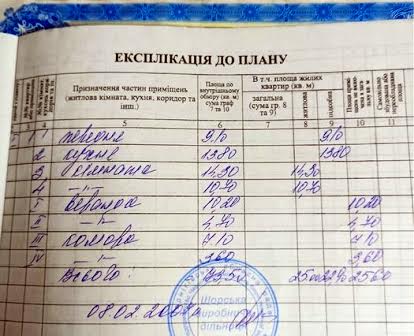 ЕКСПЛІКАЦІЯ ДО ПЛАНУ
Призначення частин приміщень (житлова кімната, кухня, коридор та інш.)
Площа по внутрішньому обміру (кв. м) сума граф 7 та 10
В т.ч. площа жилих квартир (кв. м)
загальна (сума гр. 8 та 9)
житлова
підсобна
5 6 7 8 9 10 11
1 передня 9,10 9,10
2 кухня 13,80 13,80
3 кімната 14,30 14,30
4 —"— 10,70 10,70
І веранда 10,20 10,20
ІІ —"— 4,70 4,70
ІІІ комора 7,10 7,10
IV 3,60 3,60
Всього: 73,50 25,00 22,90 25,60
08.02.200
Щорська
виробнича
дільниця